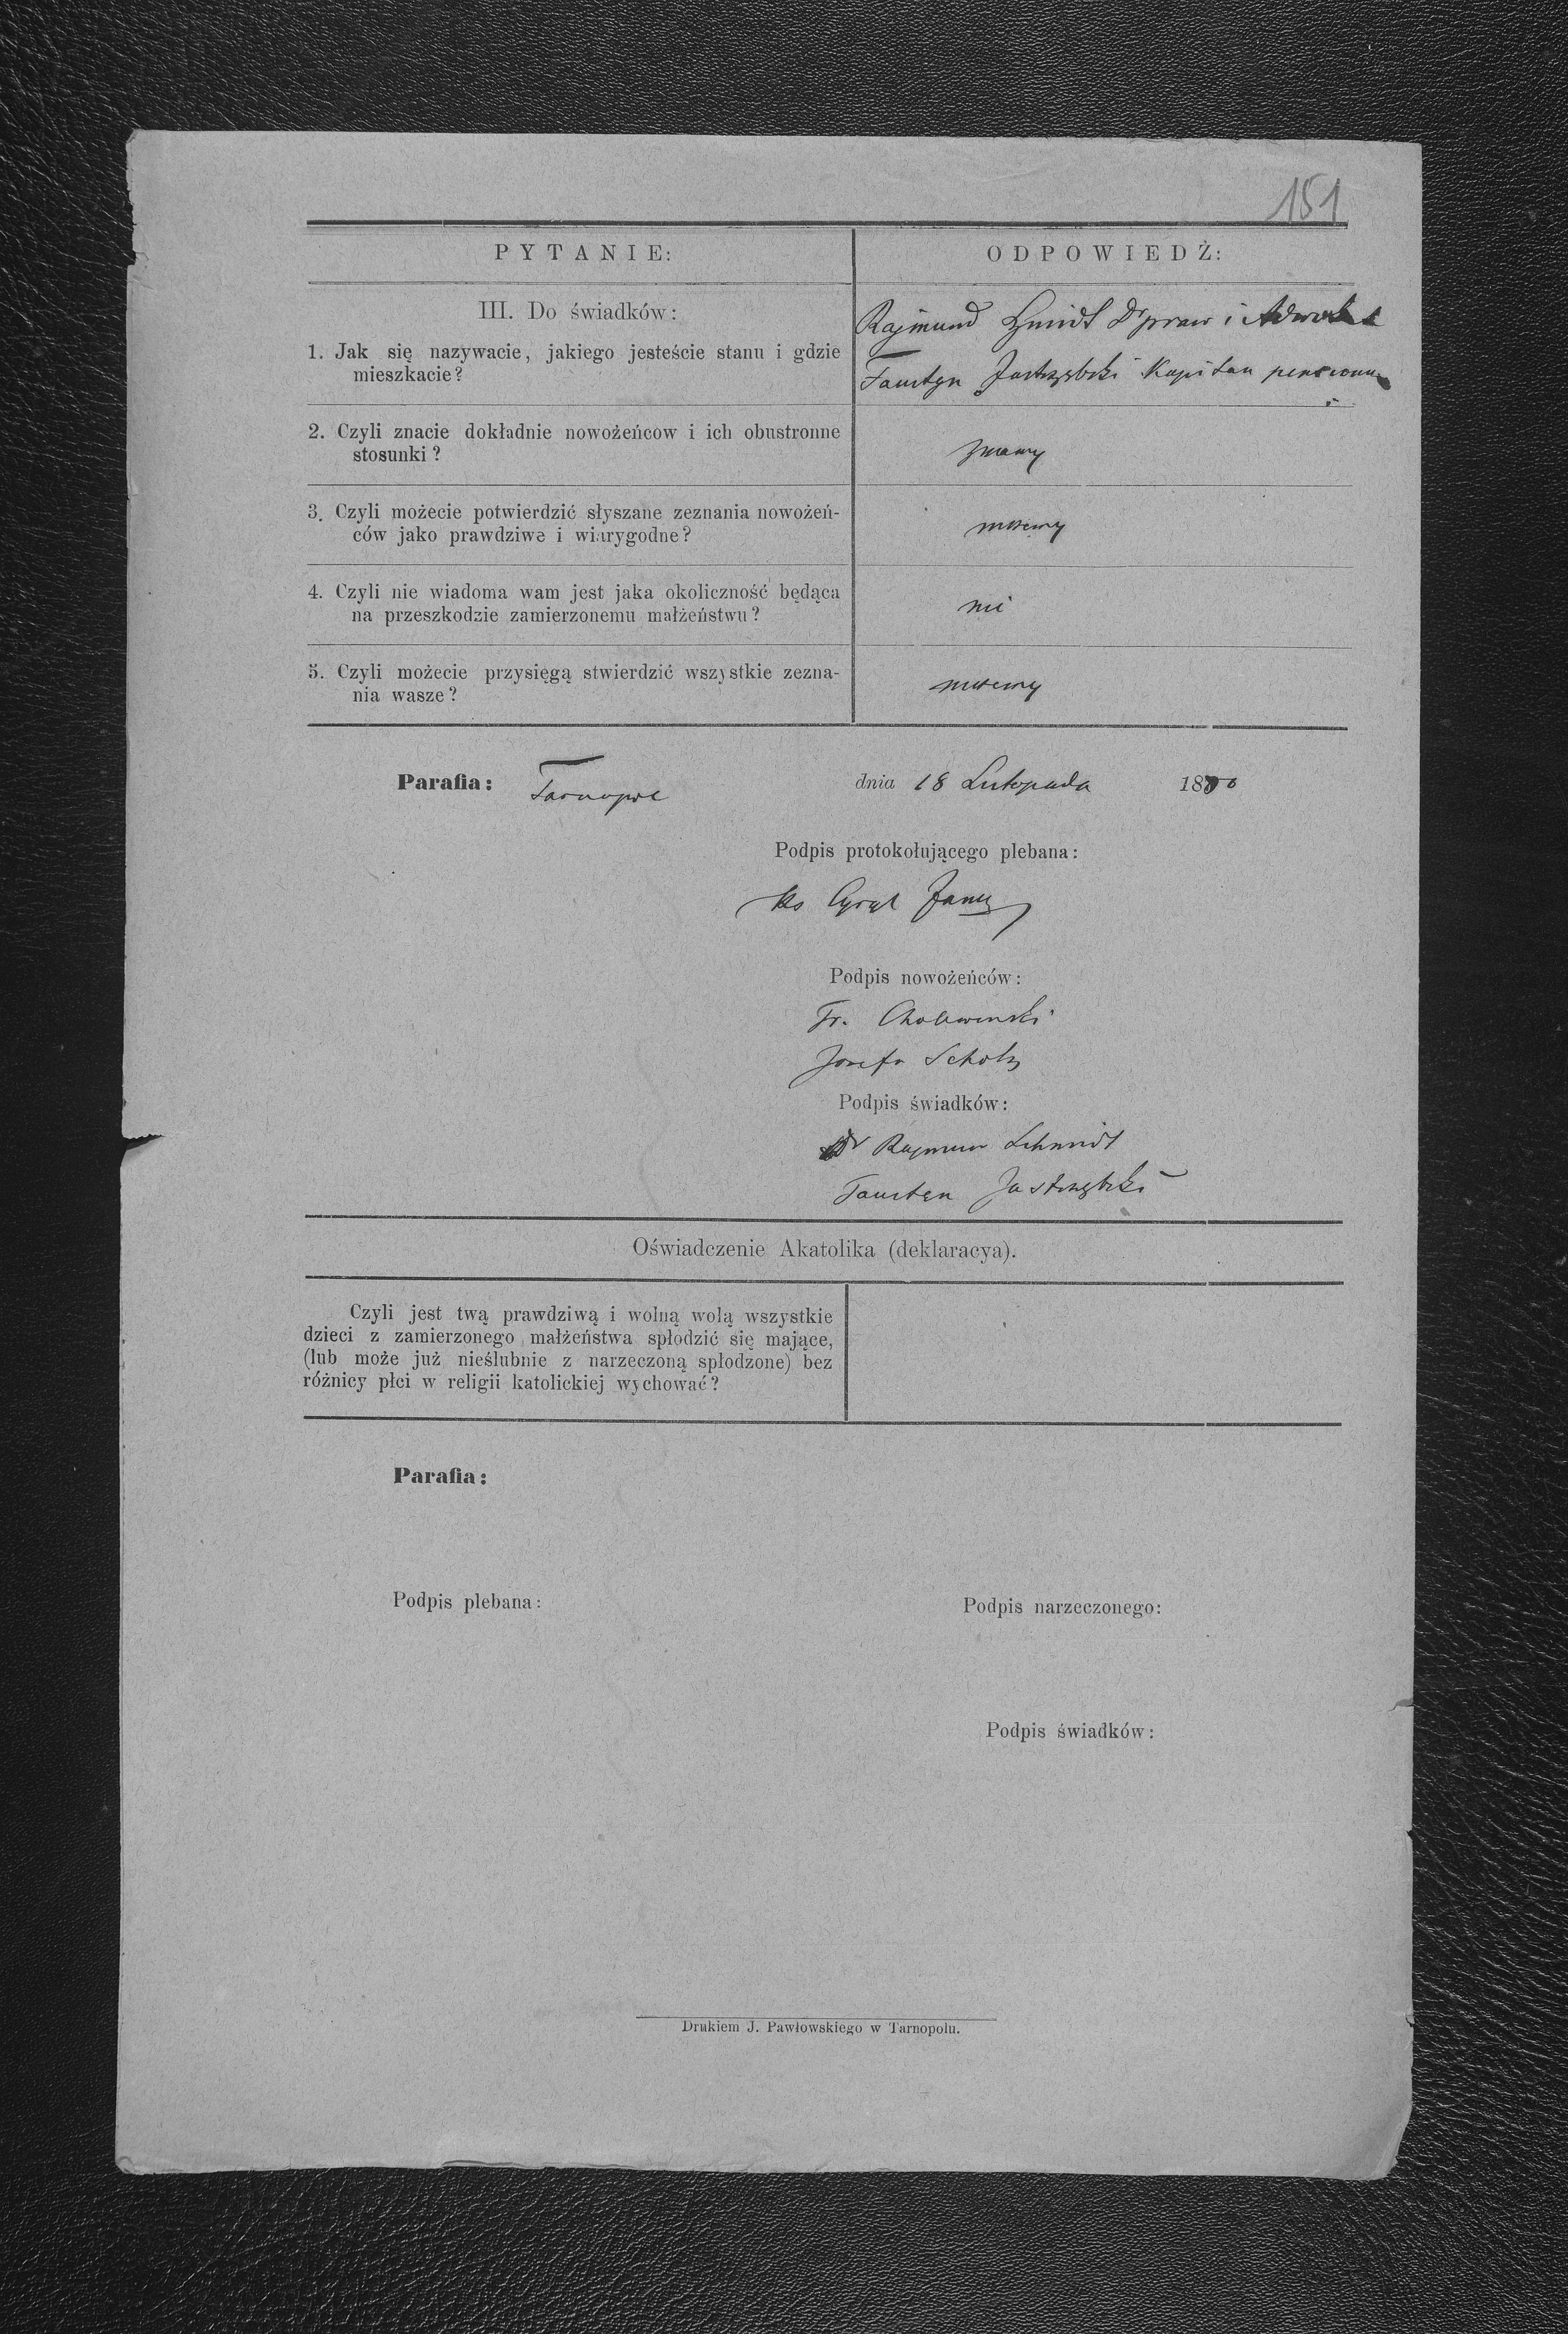 151
PYTANIE:
ODPOWIEDŹ:
III. Do świadków:
1. Jak się nazywacie, jakiego jesteście stanu i gdzie
mieszkacie?
Rajmund Szmidt Dr praw i Adwokat
Faustyn Jastrzębski Kapitan pensionow.
2. Czyli znacie dokładnie nowożeńcow i ich obustronne
stosunki?
znamy
3. Czyli możecie potwierdzić słyszane zeznania nowożeń-
ców jako prawdziwe i wiarygodne?
możemy
4. Czyli nie wiadoma wam jest jaka okoliczność będąca
na przeszkodzie zamierzonemu małżeństwu?
nie
5. Czyli możecie przysięgą stwierdzić wszystkie zezna-
nia wasze?
możemy
Parafia: Tarnopol dnia 18 Listopada 1880
Podpis protokołującego plebana:
Ks Cyryl
Podpis nowożeńców:
Fr. Cholewinski
Josefa Scholz
Podpis świadków:
Dr Rajmun Schmidt
Faustyn Jastrzębski
Oświadczenie Akatolika (deklaracya).
Czyli jest twą prawdziwą i wolną wolą wszystkie
dzieci z zamierzonego małżeństwa spłodzić się mające,
(lub może już nieślubnie z narzeczoną spłodzone) bez
różnicy płci w religii katolickiej wychować?
Parafia:
Podpis plebana:
Podpis narzeczonego:
Podpis świadków:
Drukiem J. Pawłowskiego w Tarnopolu.